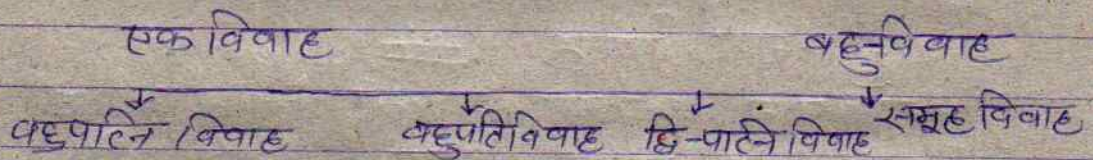 एक विवाह बहुविवाह
बहुपत्नि विवाह बहुपति विवाह द्वि-पत्नि विवाह समूह विवाह